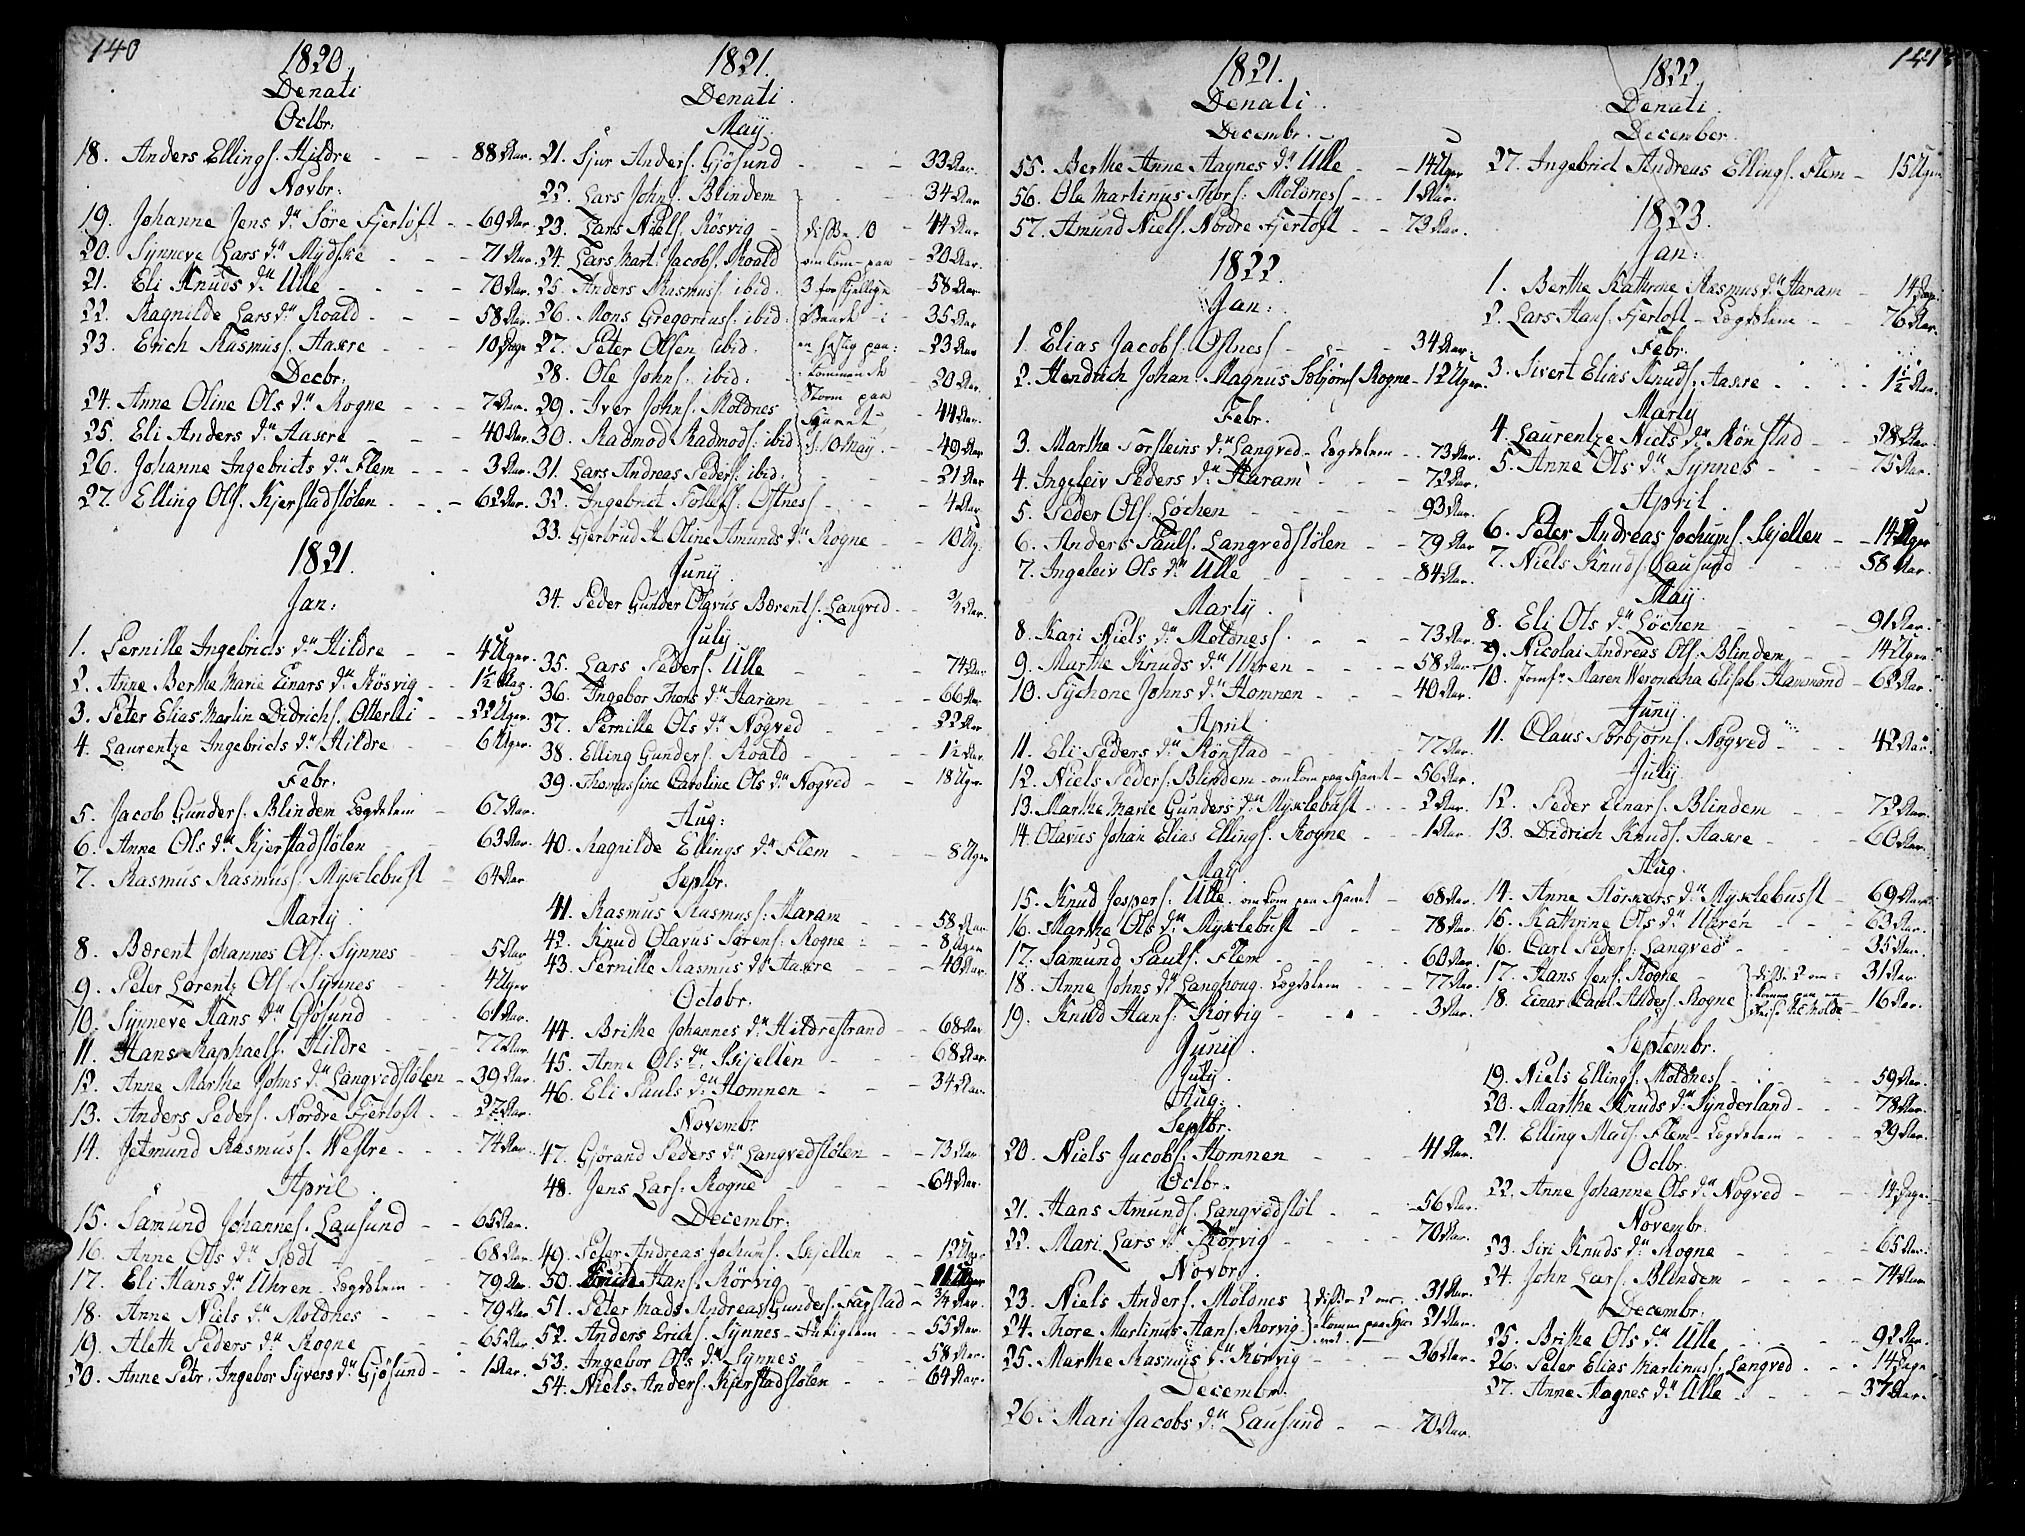 140
1820.
Denati
Octbr:
18. Anders Ellings. Hildre - - - 88 Aar.
Novbr:
19. Johanne Jens dr. Söre Fjertoft - - 69 Aar.
20. Synneve Lars dr. - - - 71 Aar.
21. Eli Knuds dr. Ulle - - - - 70 Aar.
22. Ragnilde Lars dr. Roald - - - 58 Aar.
23. Erich Rasmuss. Aakre - - - 10 Dage
Decbr:
24. Anne Oline Ols dr. Rogne - - - 7 Aar.
25. Eli Anders dr. Aakre - - - 40 Aar.
26. Johanne Ingebricts dr. Flem - - - 3 Aar.
27. Elling Ols. Kjerstadstölen - - - 62 Aar.
1821.
Jan:
1. Pernille Ingebricts dr. Hildre - - 4 Uger.
2. Anne Berthe Marie Einars dr. Rösvig - - 1½ Aar.
3. Peter Elias Martin Didrichs. Otterlei - - 22 Uger.
4. Laurentze Ingebricts dr. Hildre - - 6 Uger.
Febr:
5. Jacob Gunders. Blindem Lægdslem - 67 Aar.
6. Anne Ols dr. Kjerstadstölen - - 63 Aar.
7. Rasmus Rasmuss. Myklebust - 64 Aar
Marty
8. Bærent Johannes Ols. Synnes - - 5 Aar
9. Peter Lorentz Ols. Synnes - - 4 Uger
10. Synneve Hans dr. Gjösund - - 61 Aar.
11. Hans Raphaels. Hildre - - - 77 Aar.
12. Anne Marthe Johns dr. Langvedstölen - 39 Aar.
13. Anders Peders. Nordre Fjertoft - - 27 Aar.
14. Jetmund Rasmuss. Westre - - - 74 Aar.
April
15. Samund Johannes. Lausund - - 65 Aar.
16. Anne Ols dr. - - 68 Aar.
17. Eli Hans dr. Uhren - Lægdslem - - 79 Aar
18. Anne Niels dr. Moldnes - - 79 Aar
19. Aleth Peders dr. Rogne - - 65 Aar.
20. Anne Petr. Ingebor Syvers dr. Gjösund - - 1 Aar.
1821.
Denati.
May.
21. Sjur Anders. Gjösund - - - 33 Aar.
22. Lars Johns. Blindem - - 34 Aar
23. Lars Niels. Rösvig - disse 10 - 44 Aar
24. Lars Mart. Jacobs. Roald omkom paa - 20 Aar.
25. Anders Rasmuss. ibid. 3 forskjellige - 58 Aar
26. Mons Gregoriuss. ibid. Baade i - 35 Aar
27. Peter Olsen ibid. en hastig paa: - 23 Aar
28. Ole Johns. ibid: kommende - 20 Aar.
29. Iver Johns. Moldnes Storm paa - 44 Aar.
30. Radmod Radmods: ibid Havet - 49 Aar
31. Lars Andreas Peders. ibid. d. 10 May. - 21 Aar
32. Ingebrict Tollefs. Ostness - - - 4 Aar.
33. Gjertrud K. Oline Amunds dr. Rogne - - 10 Ug:
Juny
34. Peder Gunder Olavus Bærents. Langved - - ¾ Aar.
July.
35. Lars Peders. Ulle - - - 74 Aar
36. Ingebor Thors dr. Haram - - - 66 Aar
37. Pernille Ols dr. Nogved - - - 22 Aar
38. Elling Gunders. Roald - - - 1½ Aar.
39. Thomassine Caroline Ols dr. Nogved - - 18 Uger
Aug:
40. Ragnilde Ellings dr. Flem - - - 8 Uger
Septbr.
41. Rasmus Rasmuss: Haram - - - 58 Aar
42. Knud Olavus Sörens: Rogne - - - 8 Uger
43. Pernille Rasmus dr. Aakre - - - 40 Aar.
Octobr.
44. Brithe Johannes dr. Hildrestrand - - 68 Aar
45. Anne Ols dr. Skjelten - - - 68 Aar.
46. Eli Pauls dr. Homnen - - - 34 Aar.
Novembr
47. Gjörand Peders dr. Langvedstölen - - 73 Aar.
48. Jens Lars: Rogne - - - 64 Aar.
Decembr.
49. Peter Andreas Jochums. Skjelten - - 12 Uger
50. Hans. Rörvig - - - 11 Uger
51. Peter Mads Andreas Gunders. Fagstad - ¾ Aar.
52. Anders Erichs. Synnes - - - 55 Aar.
53. Ingebor Ols dr. Synnes - - - 58 Aar.
54. Niels Anders. Kjerstadstölen - - - 64 Aar.
1821.
Denati.
Decembr.
55. Berthe Anne Aagnes dr. Ulle - - 14 Uger
56. Ole Martinus Thors: Moldness - - 1 Aar.
57. Amund Niels. Nordre Fjertoft - - 73 Aar.
1822.
Jan:
1. Elias Jacobs. Ostness - - - 34 Aar.
2. Hendrich Johan Magnus Rogne - 12 Uger.
Febr.
3. Marthe Torsteins dr. Langved - Lægdslem - - 73 Aar.
4. Ingeleiv Peders dr. Haram - - - 72 Aar.
5. Peder Ols: Löchen - - - - 93 Aar.
6. Anders Pauls. Langvedstölen - - 79 Aar
7. Ingeleiv Ols dr. Ulle - - - 84 Aar.
Marty.
8. Kari Niels dr. Moldness. - - - 73 Aar.
9. Marthe Knuds dr. Uhren - - - 58 Aar.
10. Sychone Johns dr. Homnen - - - 40 Aar.
April
11. Eli Peders dr. Rönstad - - - 77 Aar.
12. Niels Peders. Blindem - omkom paa Havet - 56 Aar.
13. Marthe Marie Gunders dr. Myklebust - - 2 Aar.
14. Olavus Johan Elias Ellings. Rogne - - - 1 Aar
May
15. Knud Jespers. Ulle. omkom paa Havet - 68 Aar.
16. Marthe Ols dr. Myklebust - - - 78 Aar.
17. Samund Pauls. Flem - - - 60 Aar.
18. Anne Johns dr. Langhoug. Lægdslem - - - 77 Aar.
19. Knud Hans. Rörvig - - - 3 Aar.
Juny.
July.
Aug:
Septbr.
20. Niels Jacobs: Homnen - - - 41 Aar.
Octbr.
21. Hans Amunds. Langvedstöl - - 56 Aar.
22. Mari Lars dr. Rörvig - - - 70 Aar.
Novbr.
23. Niels Anders. Moldnes disse 2 om: 31 Aar.
24. Thore Martinus Hans. Rorvig komm paa Ha: vet 21 Aar.
25. Marthe Rasmus dr. Rörvig - - - 36 Aar.
Decembr.
26. Mari Jacobs dr. Lausund - - 70 Aar.
141
1822
Denati
December.
27. Ingebrict Andreas Ellings. Flem - 15 Uger
1823.
Jan:
1. Berthe Kathrine Rasmus dr. Haram - 14 Dage
2. Lars Hans. Fjertoft - Lægdslem - - 76 Aar.
Febr.
3. Sivert Elias Knuds. Aakre - - - 1½ Aar.
Marty
4. Laurentze Niels dr. Rönstad - - 28 Aar.
5. Anne Ols dr. Synnes - - - 75 Aar.
April.
6. Peter Andreas Jochums. Skjelten - - 14 Uger
7. Niels Knuds. Lausund - - - 58 Aar.
May.
8. Eli Ols dr. Löchen - - - 91 Aar.
9. Nicolai Andreas Ols: Blindem - - 14 Uger
10. Jomfr. Maren Weronicha Elisab. Hammond - 62 Aar.
Juny
11. Claus Torbjörns. Nogved - - - 42 Aar.
July
12. Peder Einars. Blindem - - - 72 Aar.
13. Didrich Knuds. Aakre - - - 60 Aar.
Aug.
14. Anne dr. Myklebust - 69 Aar.
15. Kathrine Ols dr. Uhren - - - 63 Aar.
16. Carl Peders. Langved - - - 35 Aar.
17. Hans Jens. Rogne - disse 2 om: 31 Aar
18. Einar Carl Anders. Rogne komm paa en Reise til Molde - 16 Aar.
Septembr.
19. Niels Ellings. Moldness - - - 59 Aar.
20. Marthe Knuds dr. Synderland - - 78 Aar.
21. Elling Mads. Flem - Lægdslem - - 29 Aar.
Octbr.
22. Anne Johanne Ols dr. Nogved - - 14 Dage
Novembr.
23. Siri Knuds dr. Rogne - - - 65 Aar.
24. John Lars. Blindem - - - 74 Aar
Decembr.
25. Brithe Ols dr. Ulle - - - 92 Aar.
26. Peter Elias Martinuss. Langved - - - 14 Dage
27. Anne Aagnes dr. Ulle - - - 37 Aar.